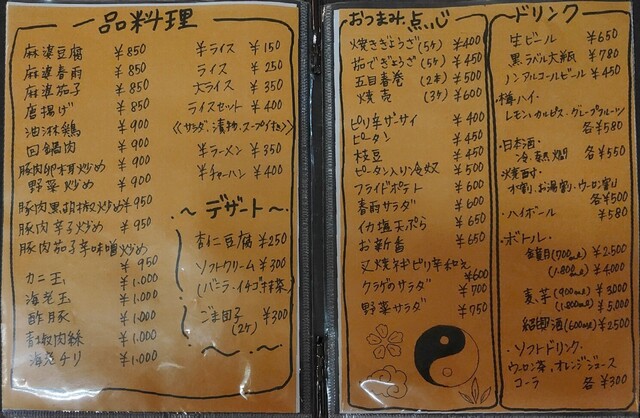 一品料理
麻婆豆腐 ¥850
麻婆春雨 ¥850
麻婆茄子 ¥850
唐揚げ ¥850
油淋鶏 ¥900
回鍋肉 ¥900
豚肉卵木耳炒め ¥900
野菜炒め ¥900
豚肉黒胡椒炒め ¥950
豚肉辛子炒め ¥950
豚肉茄子辛味噌炒め
¥950
カニ玉 ¥1.000
海老玉 ¥1.000
酢豚 ¥1.000
青椒肉絲 ¥1.000
海老チリ ¥1.000
半ライス ¥150
ライス ¥250
大ライス ¥350
ライスセット ¥400
《サラダ、漬物、スープ付き》
半ラーメン ¥350
半チャーハン ¥400
〜デザート〜
杏仁豆腐 ¥250
ソフトクリーム ¥300
(バニラ・イチゴ
ごま団子 ¥300
(2ケ)
おつまみ、点心
焼きぎょうざ(5ケ) ¥400
茹でぎょうざ(5ケ) ¥450
五目春巻(2本) ¥500
焼売(3ケ) ¥600
ピリ辛ザーサイ ¥400
ピータン ¥450
枝豆 ¥450
ピータン入り冷奴 ¥500
フライドポテト ¥600
春雨サラダ ¥600
イカ塩天ぷら ¥650
お新香 ¥650
叉焼ネギピリ辛和え
¥600
クラゲのサラダ ¥700
野菜サラダ ¥750
・ドリンク
生ビール ¥650
黒ラベル大瓶 ¥780
ノンアルコールビール ¥450
・樽ハイ・
レモン・カルピス・グレープフルーツ
各¥580
・日本酒・
冷・熱燗 各¥550
・焼酎・
水割り、お湯割り、ウーロン割り
各¥500
・ハイボール ¥580
・ボトル・
(700ml) ¥2.500
(1.800ml) ¥4000
麦・芋(900ml) ¥3000
(1.800ml) ¥5.000
紹興酒(600ml) ¥2500
・ソフトドリンク・
ウーロン茶、オレンジジュース
コーラ 各¥300